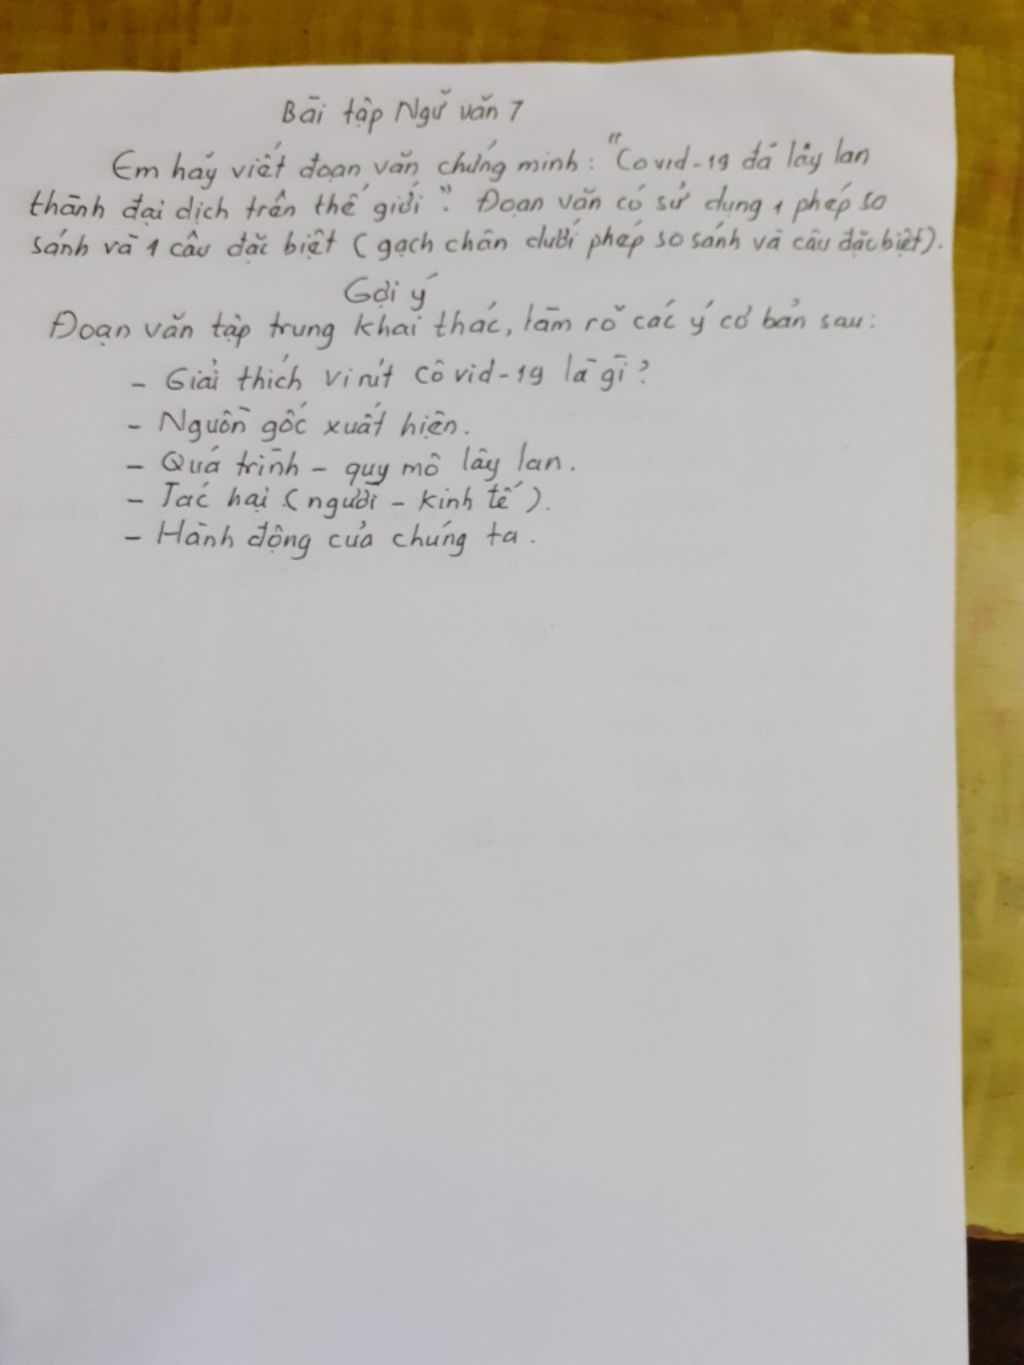 Bài tập Ngữ văn 7
Em hãy viết đoạn văn chứng minh: "Covid-19 đã lây lan
thành đại dịch trên thế giới". Đoạn văn có sử dụng 1 phép so
sánh và 1 câu đặc biệt (gạch chân dưới phép so sánh và câu đặc biệt).
Gợi ý
Đoạn văn tập trung khai thác, làm rõ các ý cơ bản sau:
- Giải thích vi rút côvid-19 là gì?
- Nguồn gốc xuất hiện.
- Quá trình - quy mô lây lan.
- Tác hại (người - kinh tế).
- Hành động của chúng ta.